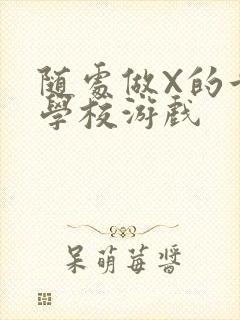 随處做X的
學校游戲
呆萌莓醬